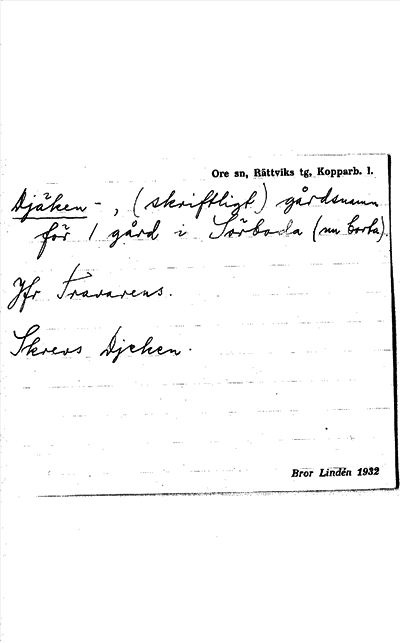 Ore sn, Rättviks tg, Kopparb. l.
Djäken-, (skriftligt) gårdsnamn
för 1 gård i Sörboda (nu borta).
Jfr Travarens.
Skrevs Djeken.
Bror Lindén 1932